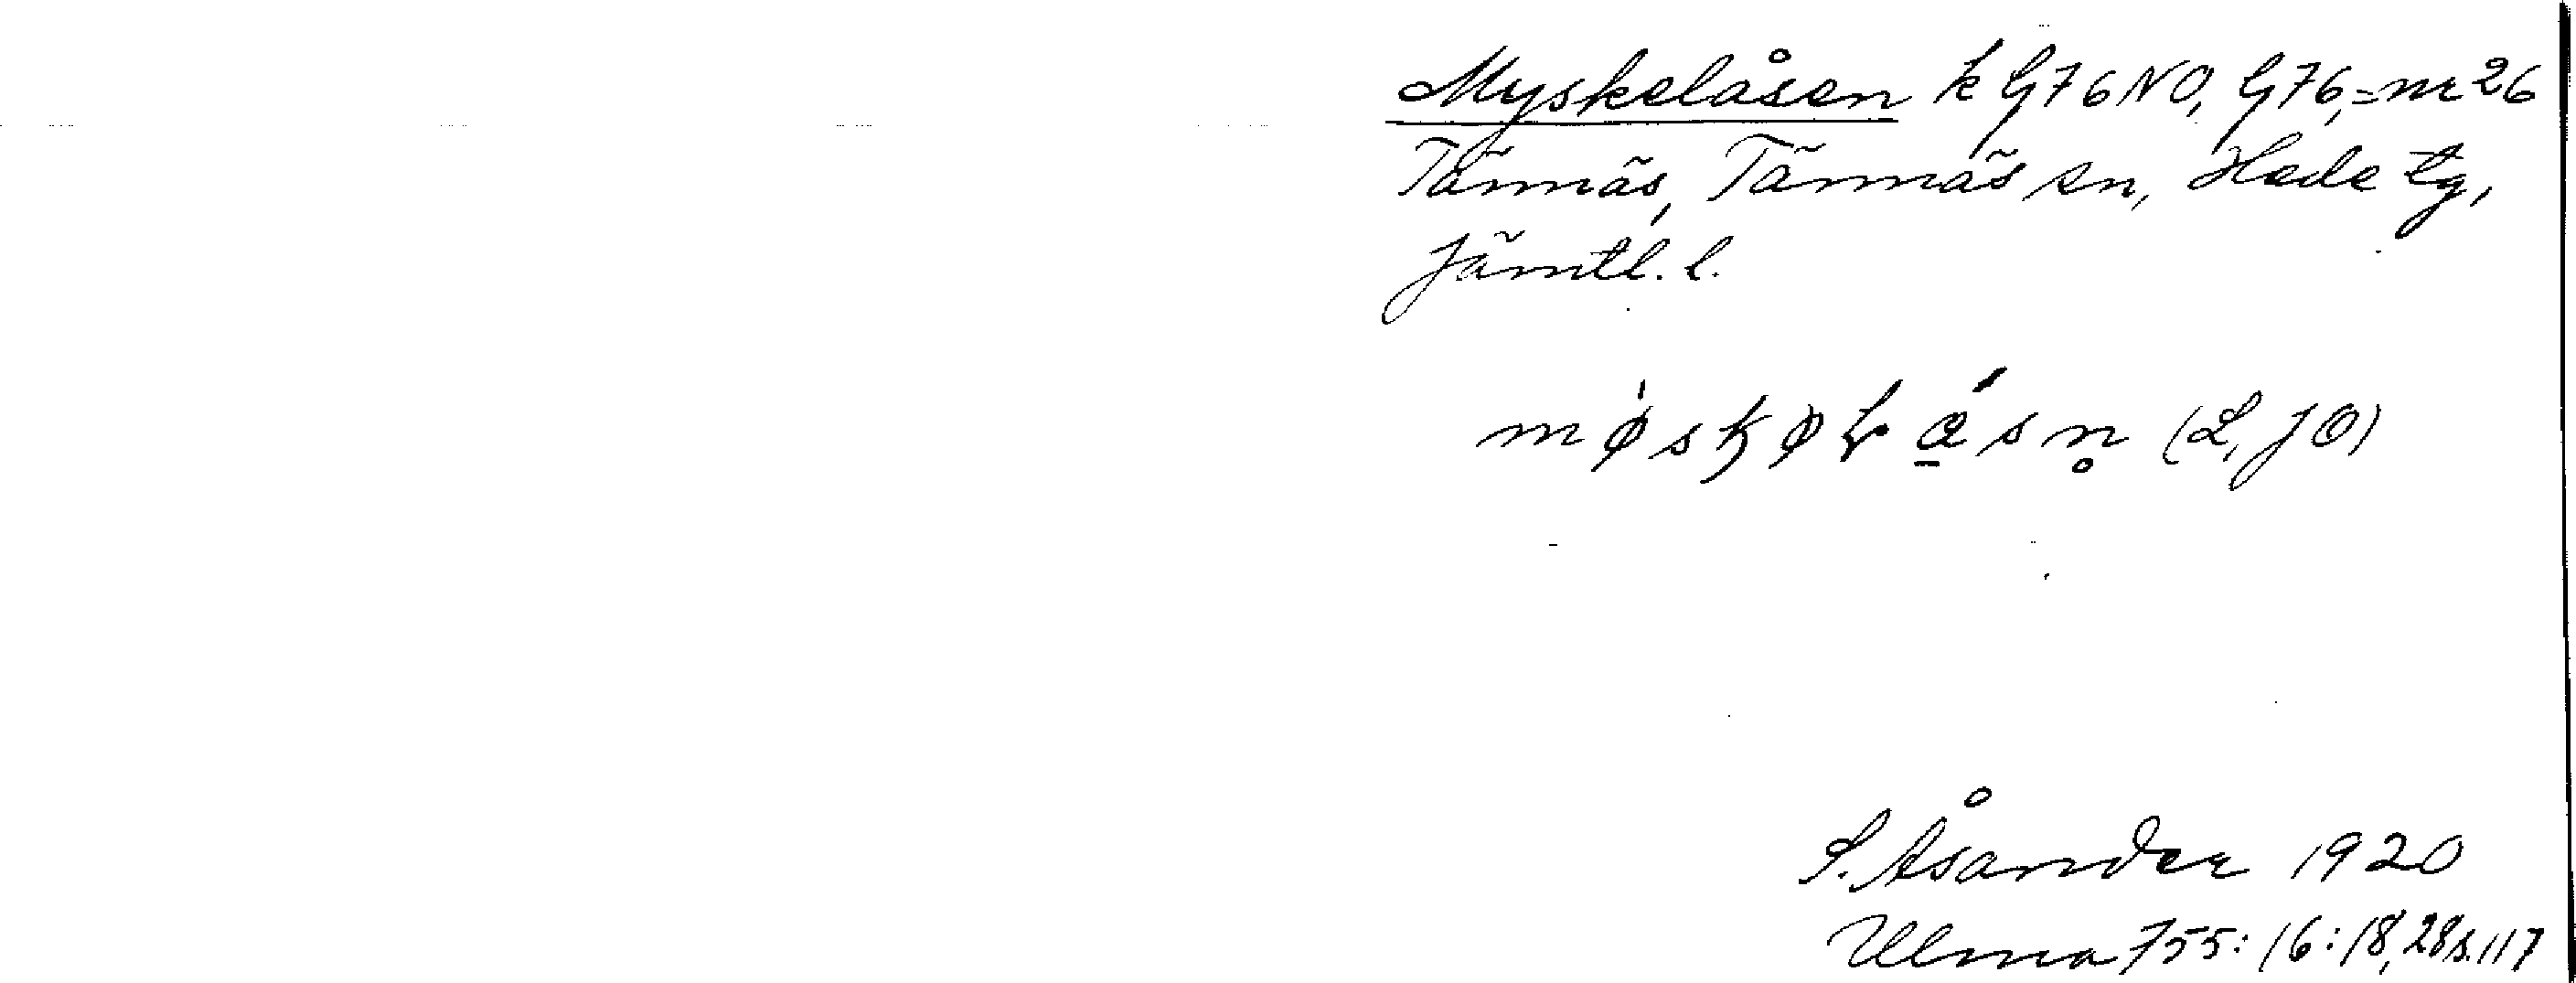 Myskelåsen k G76NO, G76,=nr 26
Tännäs, Tännäs sn, Hede tg,
Jämtl. l.
(L, JO)
S. Åsander 1920
Ulma 755:16:18,28 s.117